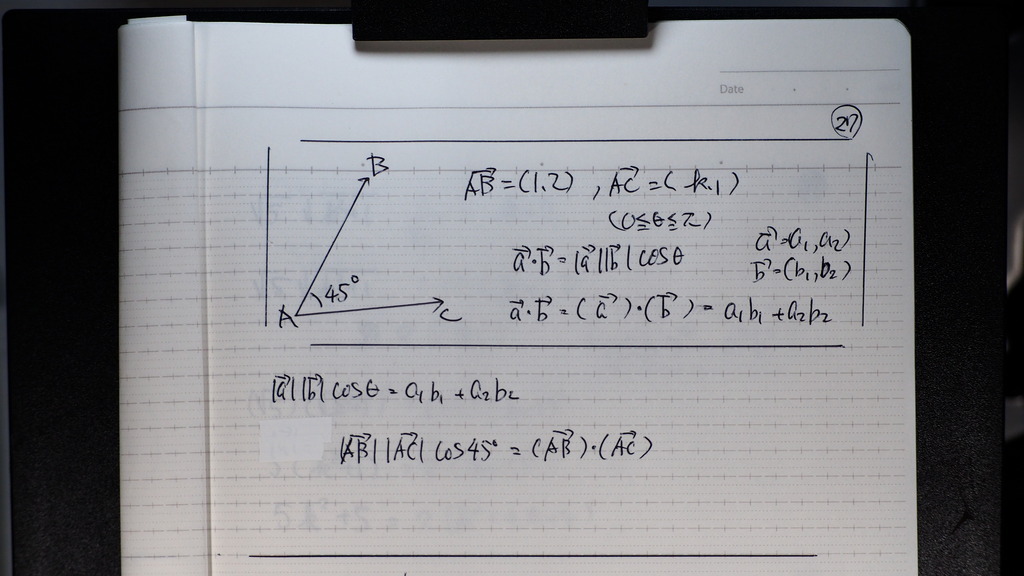 Date
27
B
A
45°
C
AB→=(1.2) , AC→=( k.1)
(0≦θ≦π)
a→·b→=|a→||b→|cosθ
a→=(a₁,a₂)
b→=(b₁,b₂)
a→·b→=(a→)·(b→)=a₁b₁+a₂b₂
|a→||b→|cosθ=a₁b₁+a₂b₂
|AB→||AC→|cos45°=(AB→)·(AC→)